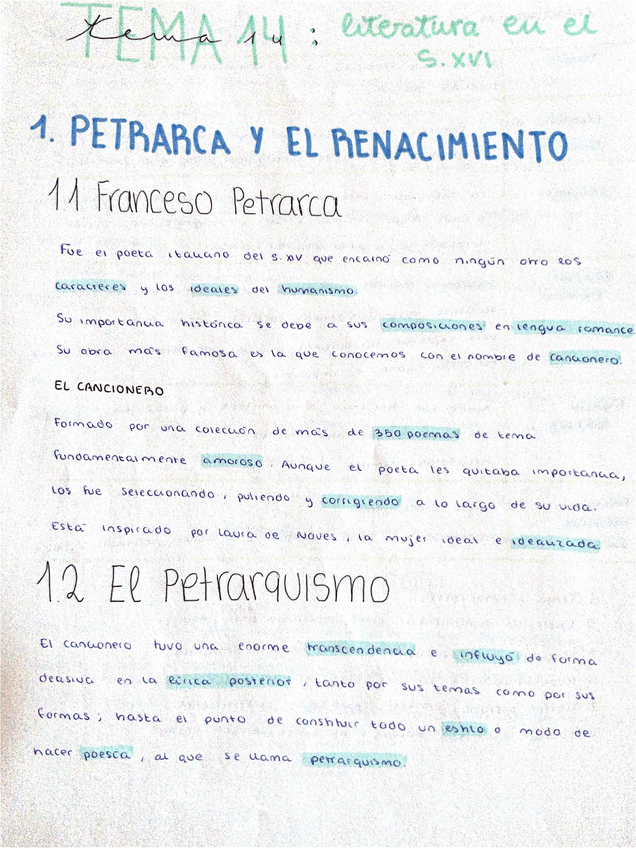 TEMA 14
tema 14: literatura en el
S.XVI
1. PETRARCA Y EL RENACIMIENTO
1.1 Franceso Petrarca
Fue el poeta italiano del S.XIV que encarnó como ningún otro los
caracteres y los ideales del humanismo.
Su importancia histórica se debe a sus composiciones en lengua romance.
Su obra más famosa es la que conocemos con el nombre de cancionero.
EL CANCIONERO
Formado por una colección de más de 350 poemas de tema
fundamentalmente amoroso. Aunque el poeta les quitaba importancia,
los fue seleccionando, puliendo y corrigiendo a lo largo de su vida.
Está inspirado por Laura de Noves, la mujer ideal e idealizada.
1.2 El Petrarquismo
El cancionero tuvo una enorme transcendencia e influyó de forma
decisiva en la lírica posterior, tanto por sus temas como por sus
formas; hasta el punto de constituir todo un estilo o modo de
hacer poesía, al que se llama petrarquismo.